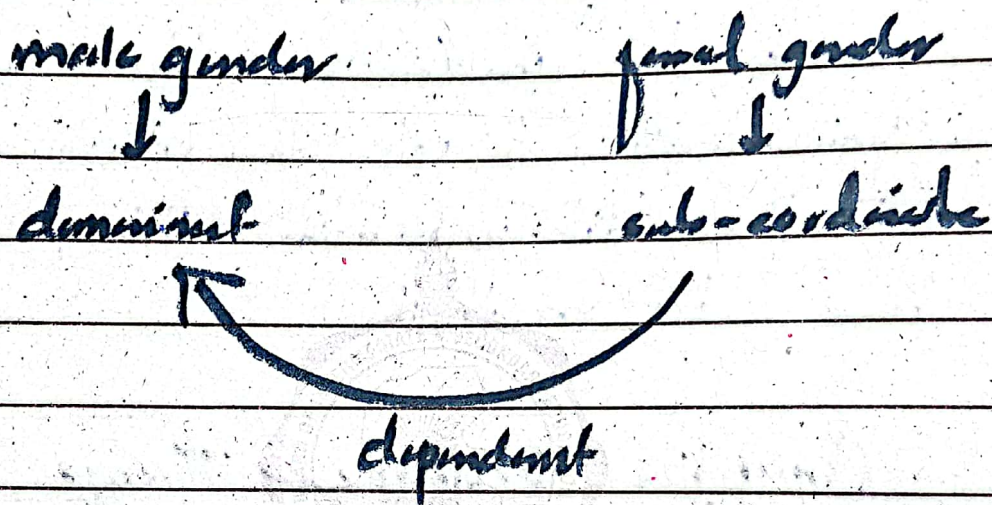 male gender femal gender
↓ ↓
dominant sub-cordinate
dependent